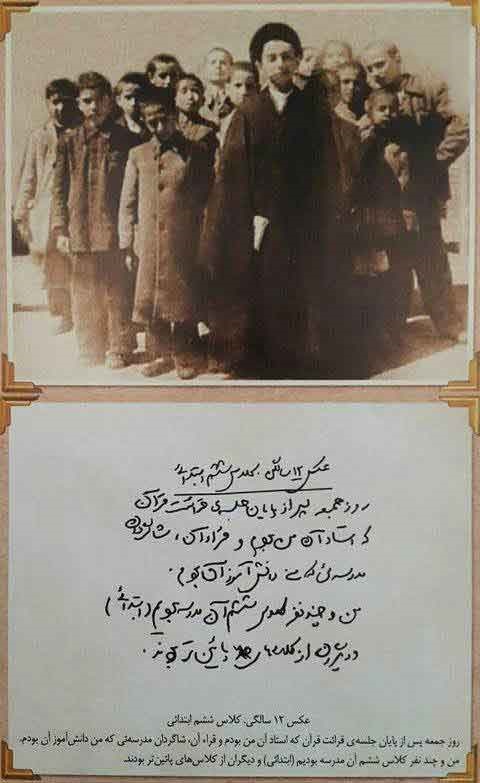 عکس ۱۲ سالگی. کلاس ششم ابتدائی
روز جمعه پس از پایان جلسه‌ی قرائت قرآن
که استاد آن من بودم و قراء آن، شاگردان
مدرسه‌ئی که من دانش‌آموز آن بودم.
من و چند نفر کلاس ششم آن مدرسه بودیم (ابتدائی)
و دیگران از کلاس‌های پائین‌تر بودند.
عکس ۱۲ سالگی. کلاس ششم ابتدائی
روز جمعه پس از پایان جلسه‌ی قرائت قرآن که استاد آن من بودم و قراء آن، شاگردان مدرسه‌ئی که من دانش‌آموز آن بودم.
من و چند نفر کلاس ششم آن مدرسه بودیم (ابتدائی) و دیگران از کلاس‌های پائین‌تر بودند.